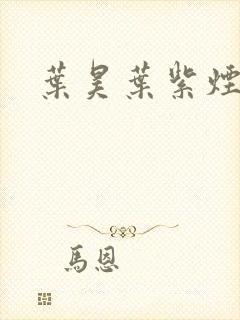 葉昊葉紫煙
馬恩